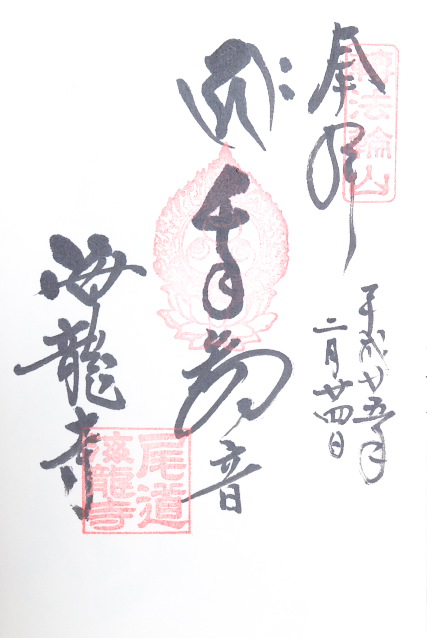 奉拝
轉法輪山
平成廿五年
二月廿四日
千手観音
海龍寺
尾道
海龍寺